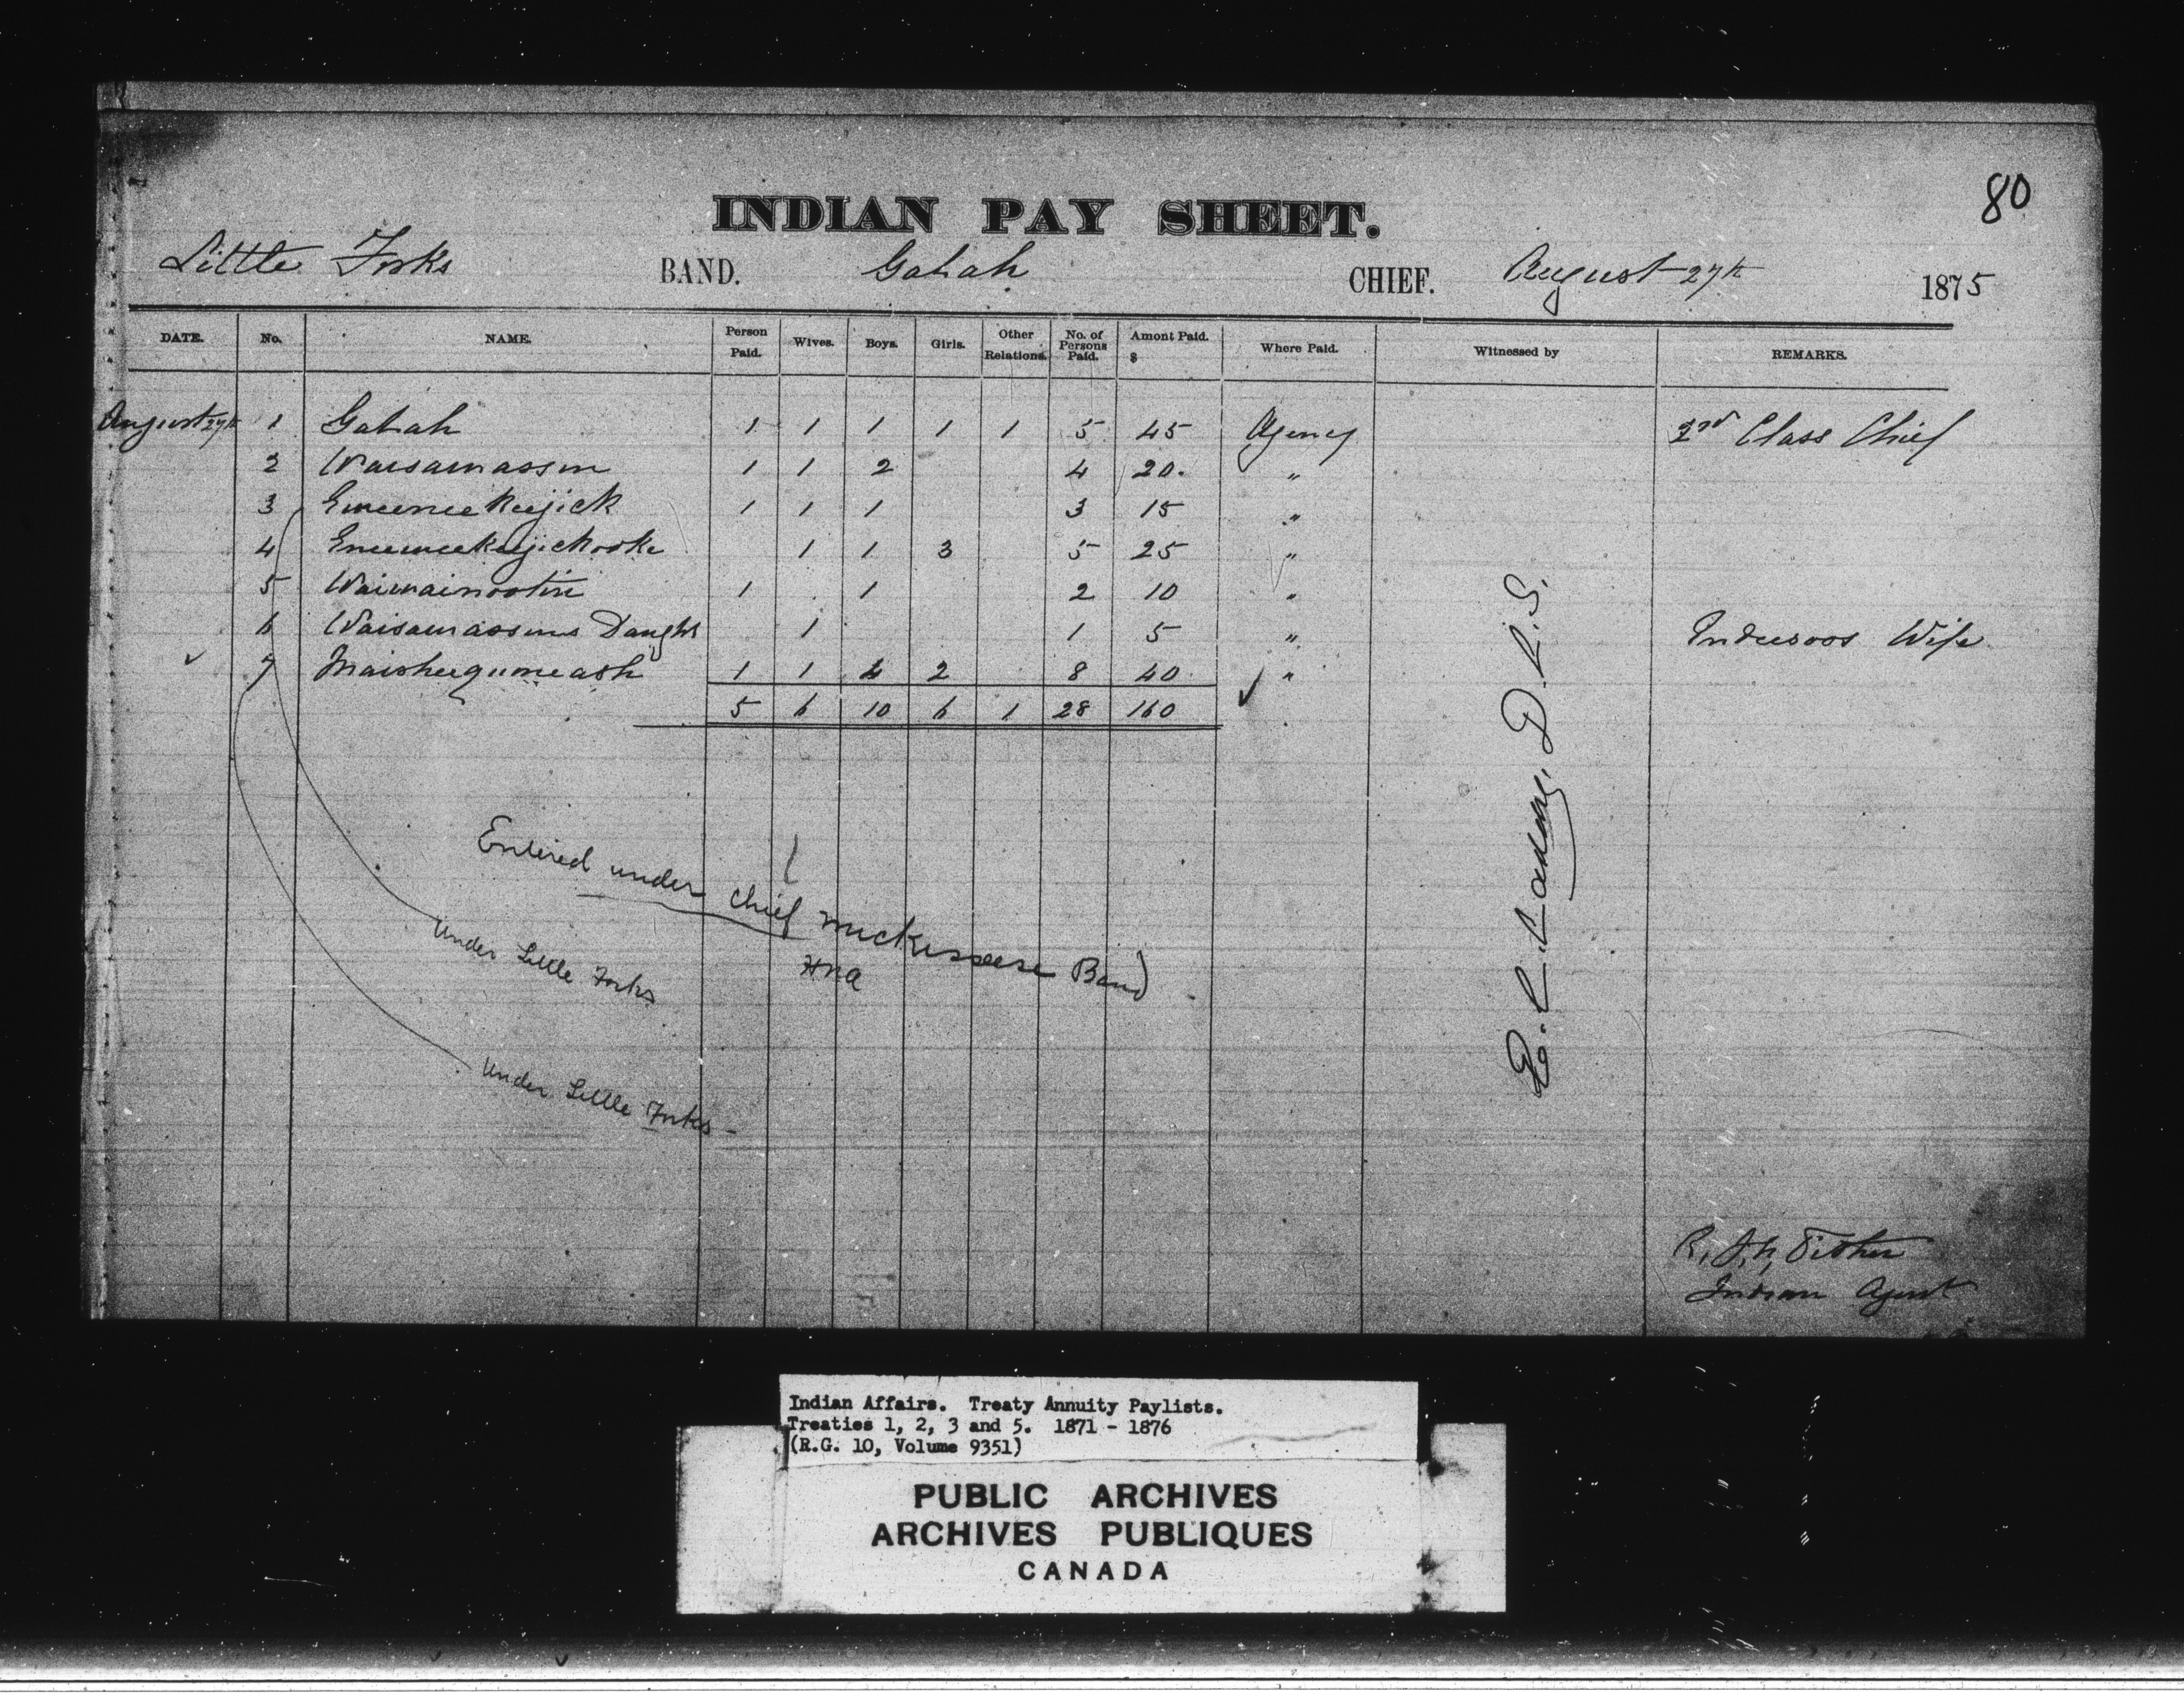 80
INDIAN PAY SHEET.
Little Forks BAND. Gabah CHIEF. August 27th 1875
DATE. No. NAME. Person Paid. Wives. Boys. Girls. Other Relations. No. of Persons Paid. Amont Paid. $ Where Paid. Witnessed by REMARKS.
August 27th 1 Gabah 1 1 1 1 1 5 45 Agency 2nd Class Chief
2 Waisawassin 1 1 2 4 20. "
3 Eneenee Keejick 1 1 1 3 15 "
4 Eneeneekeejickooke 1 1 3 5 25 "
5 Waiwainootin 1 1 2 10 "
6 Waisawassins Daughtr 1 1 5 " Indusoos Wife
7 Maisheegumeash 1 1 4 2 8 40 "
5 6 10 6 1 28 160
Entered under Chief Band
Under Little Forks
Under Little Forks -
D. L. S.
R. J. N. Pither
Indian Agent
Indian Affairs. Treaty Annuity Paylists.
Treaties 1, 2, 3 and 5. 1871 - 1876
(R.G. 10, Volume 9351)
PUBLIC ARCHIVES
ARCHIVES PUBLIQUES
CANADA